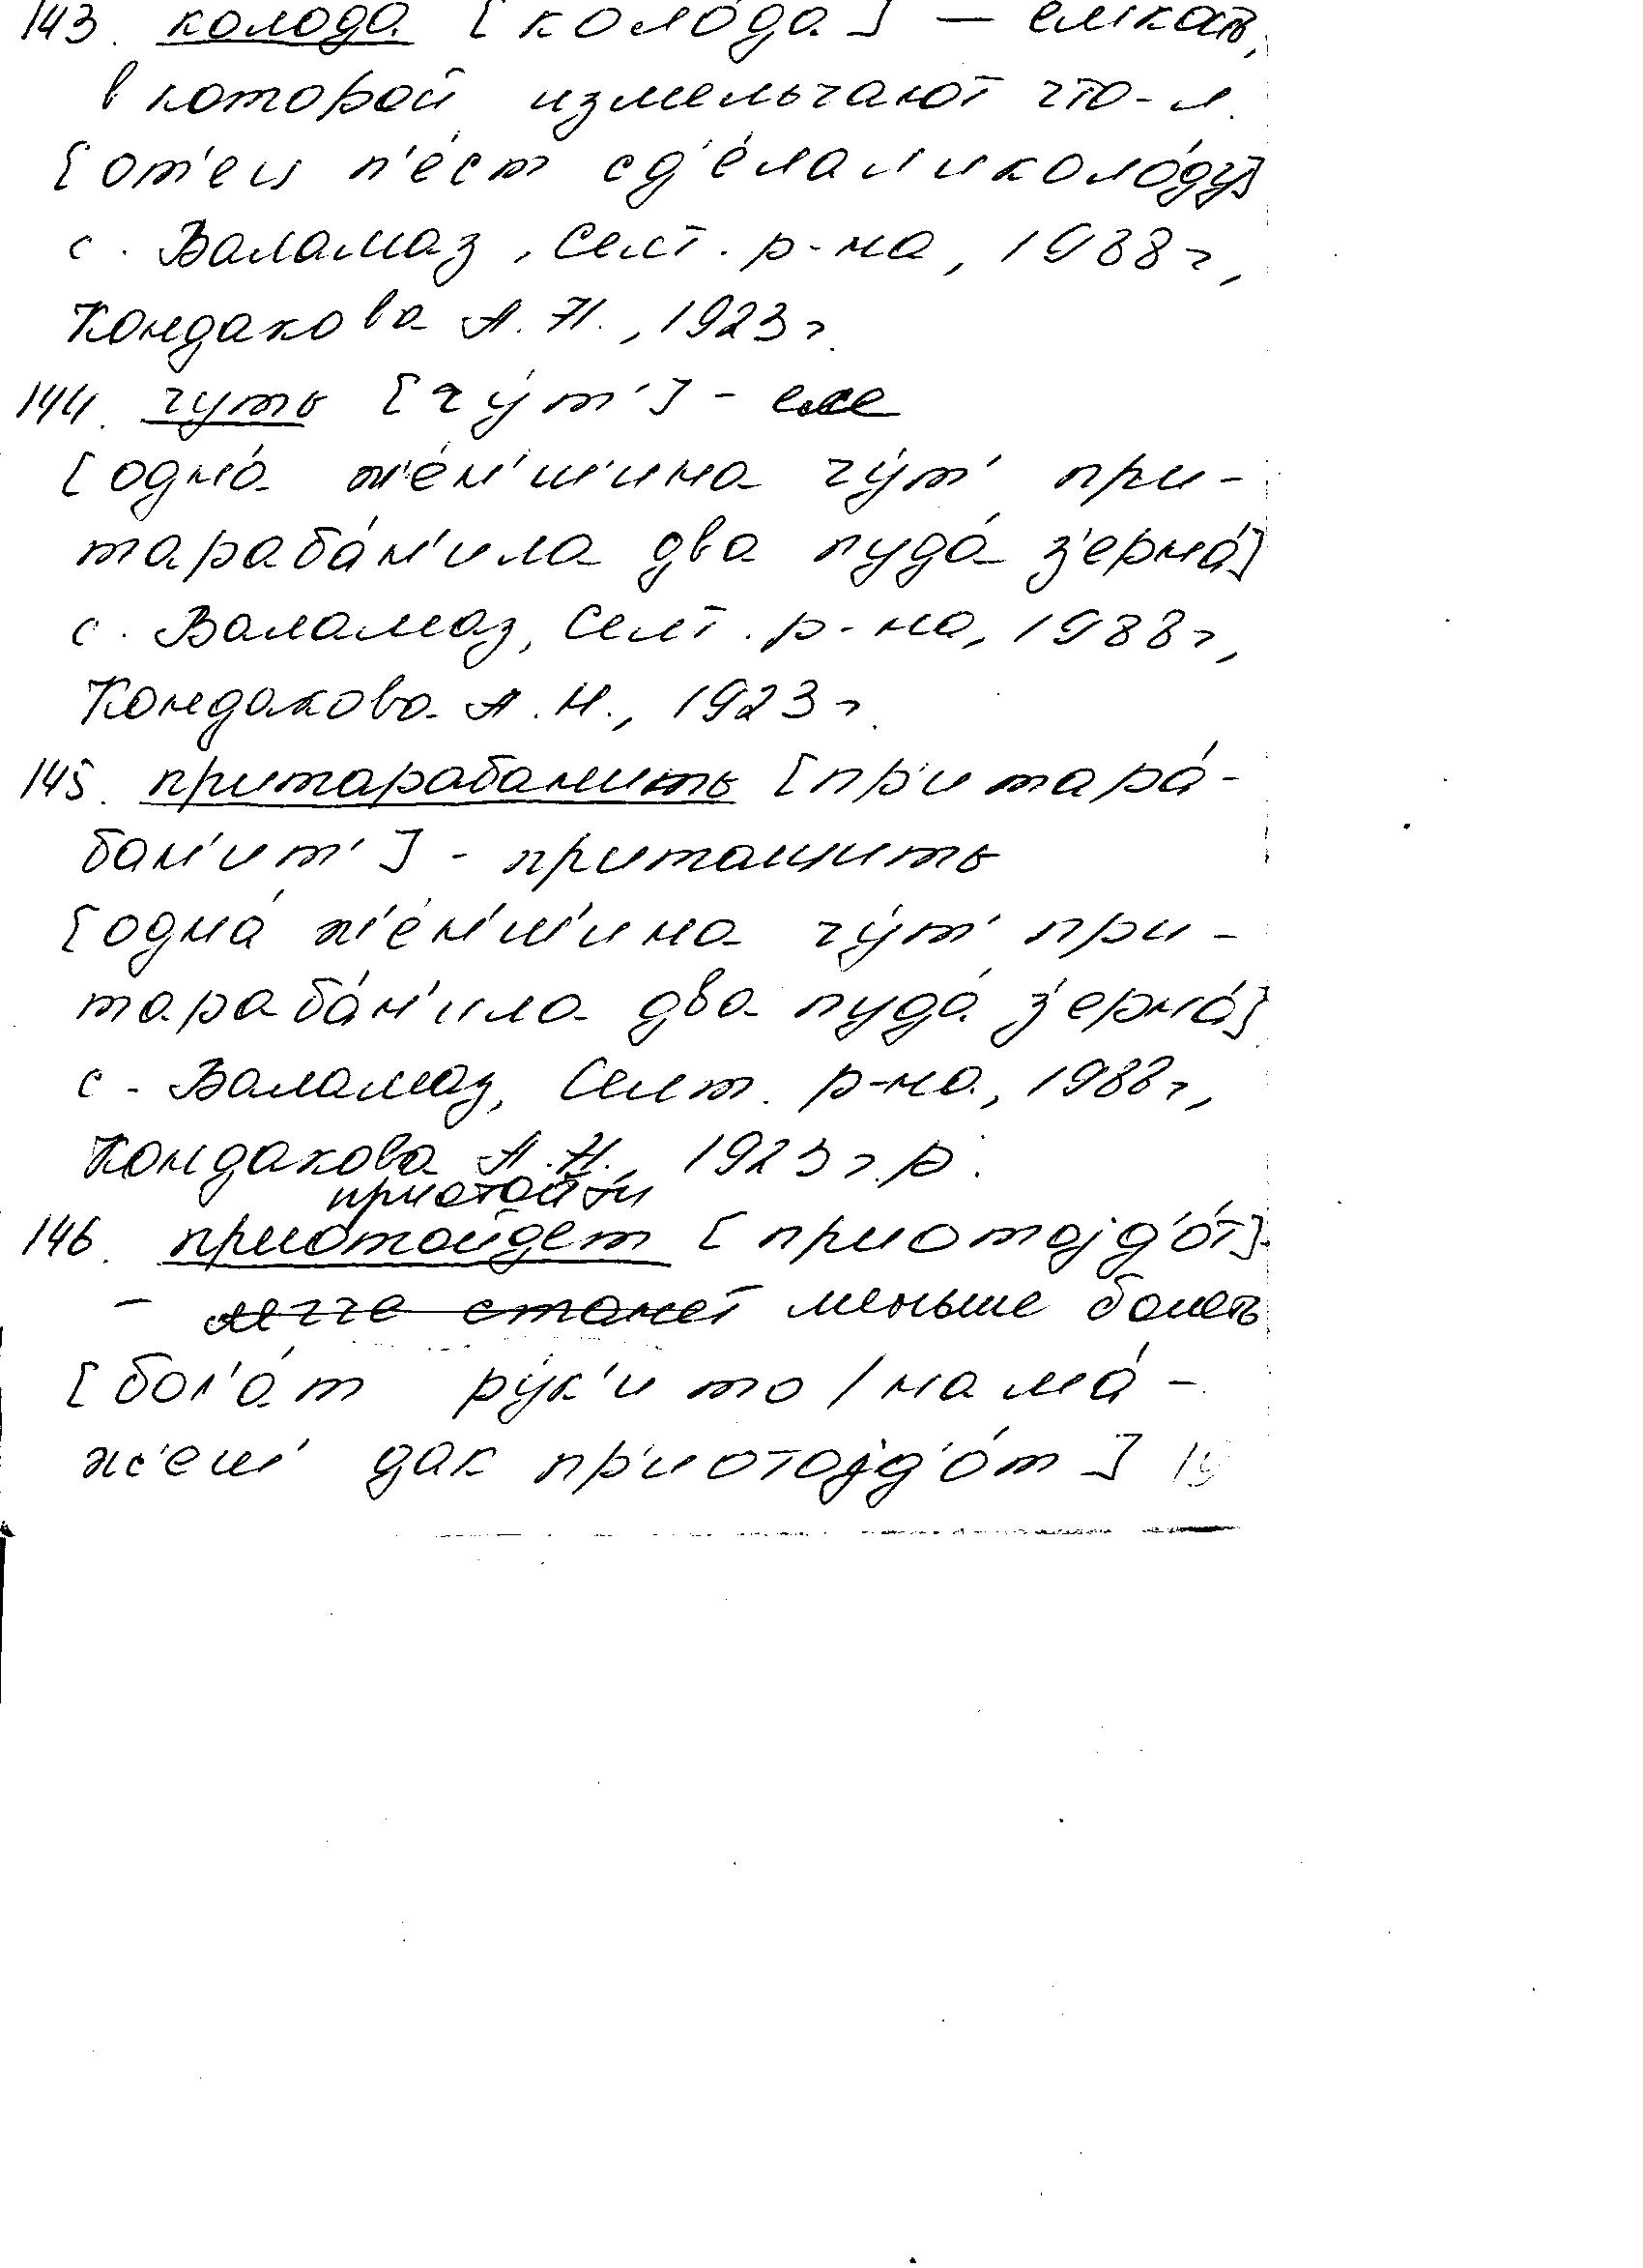 143. колода [коло́да] — емкость,
в которой измельчают что-л.
[от'ец п'е́ст сд'е́лал и коло́ду]
с. Валамаз, Селт. р-на, 1988 г,
Кондакова А.Н., 1923 г.
144. чуть [чу́т'] - еле
[одна́ ж'е́н'ш'ина чу́т' при-
тараба́н'ила два пуда́ з'ерна́]
с. Валамаз, Селт. р-на, 1988 г,
Кондакова А.Н., 1923 г.
145. притарабанить [пр'итара́-
бан'ит'] - притащить
[одна́ ж'е́н'ш'ина чу́т' при-
тараба́н'ила два пуда́ з'ерна́]
с. Валамаз, Селт. р-на, 1988 г,
Кондакова А.Н., 1923 г.р.
приотойти
146. приотойдет [приотојд'о́т]
- легче станет меньше болеть
[бол'а́т ру́к'и то / нама́-
ж'еш' дак пр'иотојд'о́т]